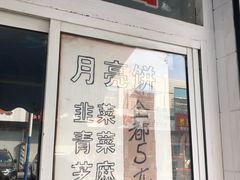 月亮饼
韭菜
青菜
芝麻
全都5